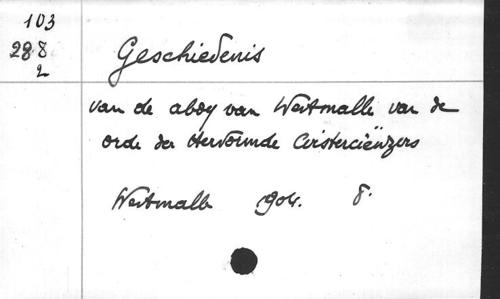 103
288
2
Geschiedenis
van de abdy van Westmalle van de
orde der Hervormde Cisterciënzers
Westmalle 1904. 8.